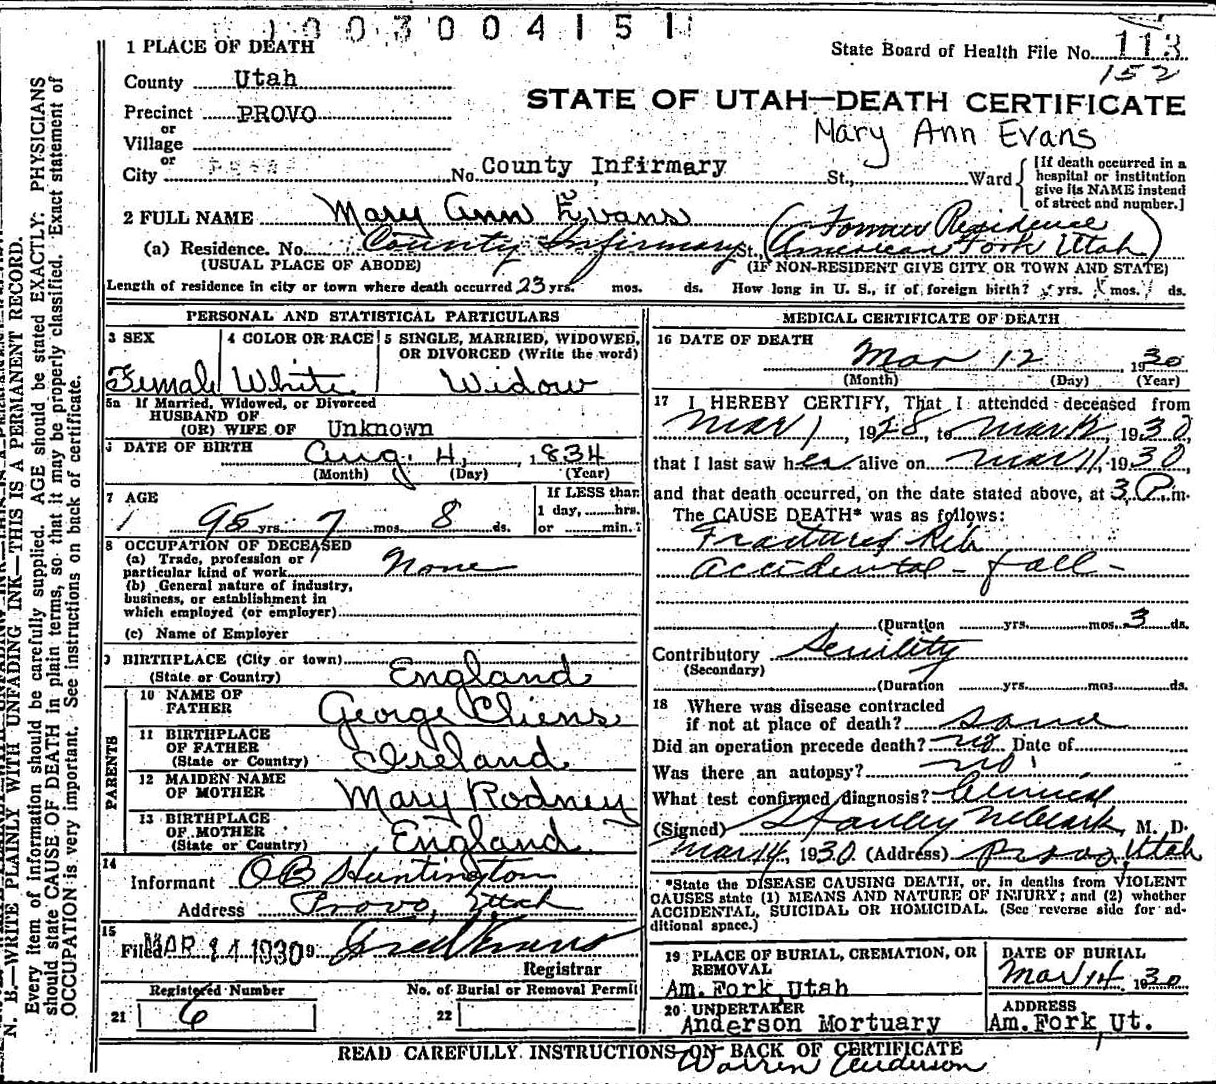 1003004151
1 PLACE OF DEATH
State Board of Health File No. 113
152
County Utah
Precinct PROVO
STATE OF UTAH—DEATH CERTIFICATE
Mary Ann Evans
or
Village
or
City
No. County Infirmary St., Ward
[If death occurred in a hospital or institution give its NAME instead of street and number.]
2 FULL NAME Mary Ann Evans
(Former Residence
(a) Residence. No. County Infirmary St., American Fork Utah)
(USUAL PLACE OF ABODE) (IF NON-RESIDENT GIVE CITY OR TOWN AND STATE)
Length of residence in city or town where death occurred 23 yrs. mos. ds. How long in U. S., if of foreign birth? yrs. mos. ds.
PERSONAL AND STATISTICAL PARTICULARS
3 SEX Female
4 COLOR OR RACE White
5 SINGLE, MARRIED, WIDOWED, OR DIVORCED (Write the word) Widow
5a If Married, Widowed, or Divorced
HUSBAND OF
(OR) WIFE OF Unknown
DATE OF BIRTH Aug. 4, 1834
(Month) (Day) (Year)
7 AGE
95 yrs. 7 mos. 8 ds.
If LESS than
1 day, hrs.
or min.
8 OCCUPATION OF DECEASED
(a) Trade, profession or
particular kind of work None
(b) General nature of industry,
business, or establishment in
which employed (or employer)
(c) Name of Employer
9 BIRTHPLACE (City or town)
(State or Country) England
PARENTS
10 NAME OF
FATHER George
11 BIRTHPLACE
OF FATHER
(State or Country) Ireland
12 MAIDEN NAME
OF MOTHER Mary Rodney
13 BIRTHPLACE
OF MOTHER
(State or Country) England
14
Informant O B Huntington
Address Provo, Utah
15
Filed MAR 14 1930 9 Fred Evans
Registrar
Registered Number No. of Burial or Removal Permit
21 6 22
MEDICAL CERTIFICATE OF DEATH
16 DATE OF DEATH
Mar 12 1930
(Month) (Day) (Year)
17 I HEREBY CERTIFY, That I attended deceased from
Mar 1, 1928, to Mar 12, 1930,
that I last saw her alive on Mar 11, 1930,
and that death occurred, on the date stated above, at 3 P. m.
The CAUSE DEATH* was as follows:
Fractured Rib
Accidental - fall -
(Duration yrs. mos. 3 ds.
Contributory Senility
(Secondary)
(Duration yrs. mos. ds.
18 Where was disease contracted
if not at place of death? same
Did an operation precede death? no Date of
Was there an autopsy? no
What test confirmed diagnosis? Clinical
(Signed) Stanley M. D.
Mar 14, 1930 (Address) Provo, Utah
*State the DISEASE CAUSING DEATH, or, in deaths from VIOLENT
CAUSES state (1) MEANS AND NATURE OF INJURY; and (2) whether
ACCIDENTAL, SUICIDAL OR HOMICIDAL. (See reverse side for ad-
ditional space.)
19 PLACE OF BURIAL, CREMATION, OR
REMOVAL
Am. Fork, Utah
DATE OF BURIAL
Mar 14 1930
20 UNDERTAKER
Anderson Mortuary
ADDRESS
Am. Fork Ut.
READ CAREFULLY INSTRUCTIONS ON BACK OF CERTIFICATE
Warren Anderson
N. B.—WRITE PLAINLY WITH UNFADING INK—THIS IS A PERMANENT RECORD.
Every item of information should be carefully supplied. AGE should be stated EXACTLY: PHYSICIANS
should state CAUSE OF DEATH in plain terms, so that it may be properly classified. Exact statement of
OCCUPATION is very important. See instructions on back of certificate.